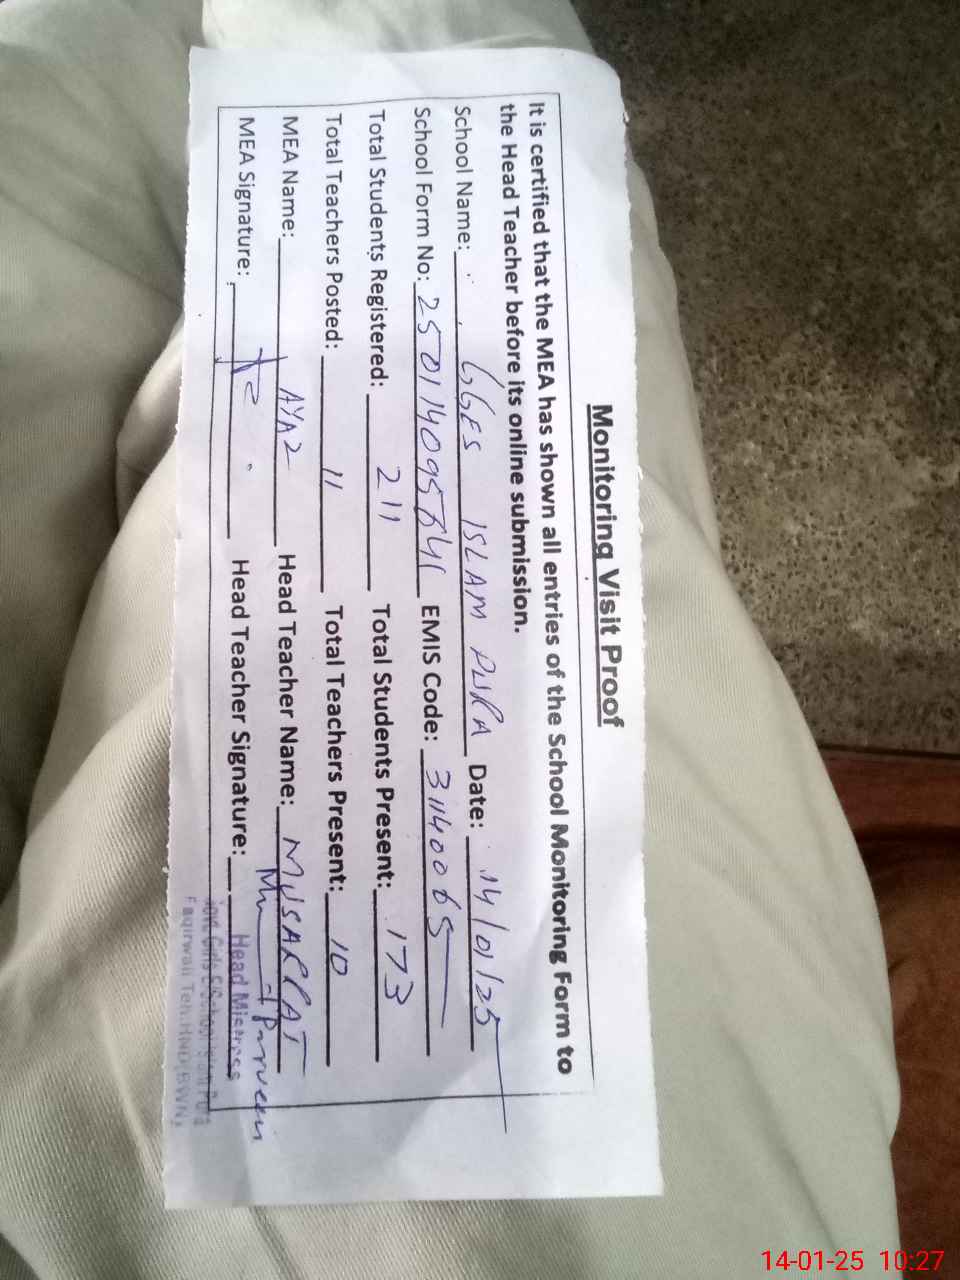 Monitoring Visit Proof
It is certified that the MEA has shown all entries of the School Monitoring Form to
the Head Teacher before its online submission.
School Name: GGES ISLAM PURA Date: 14/01/25
School Form No: EMIS Code: 31140065
Total Students Registered: 211 Total Students Present: 173
Total Teachers Posted: 11 Total Teachers Present: 10
MEA Name: AYAZ Head Teacher Name: MUSARRAT
MEA Signature: Head Teacher Signature: Parveen
Head Mistress
Govt Girls E/School Islam Pura
Faqirwali Teh.HND(BWN)
14-01-25 10:27